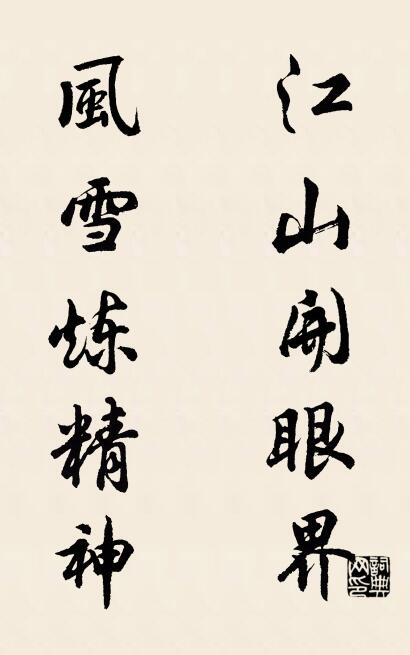 江山開眼界
風雪炼精神
詞典网印